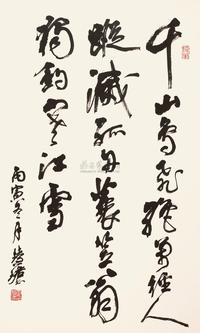 千山鳥飛絕萬徑人
蹤滅孤舟蓑笠翁
獨釣寒江雪
丙寅冬月